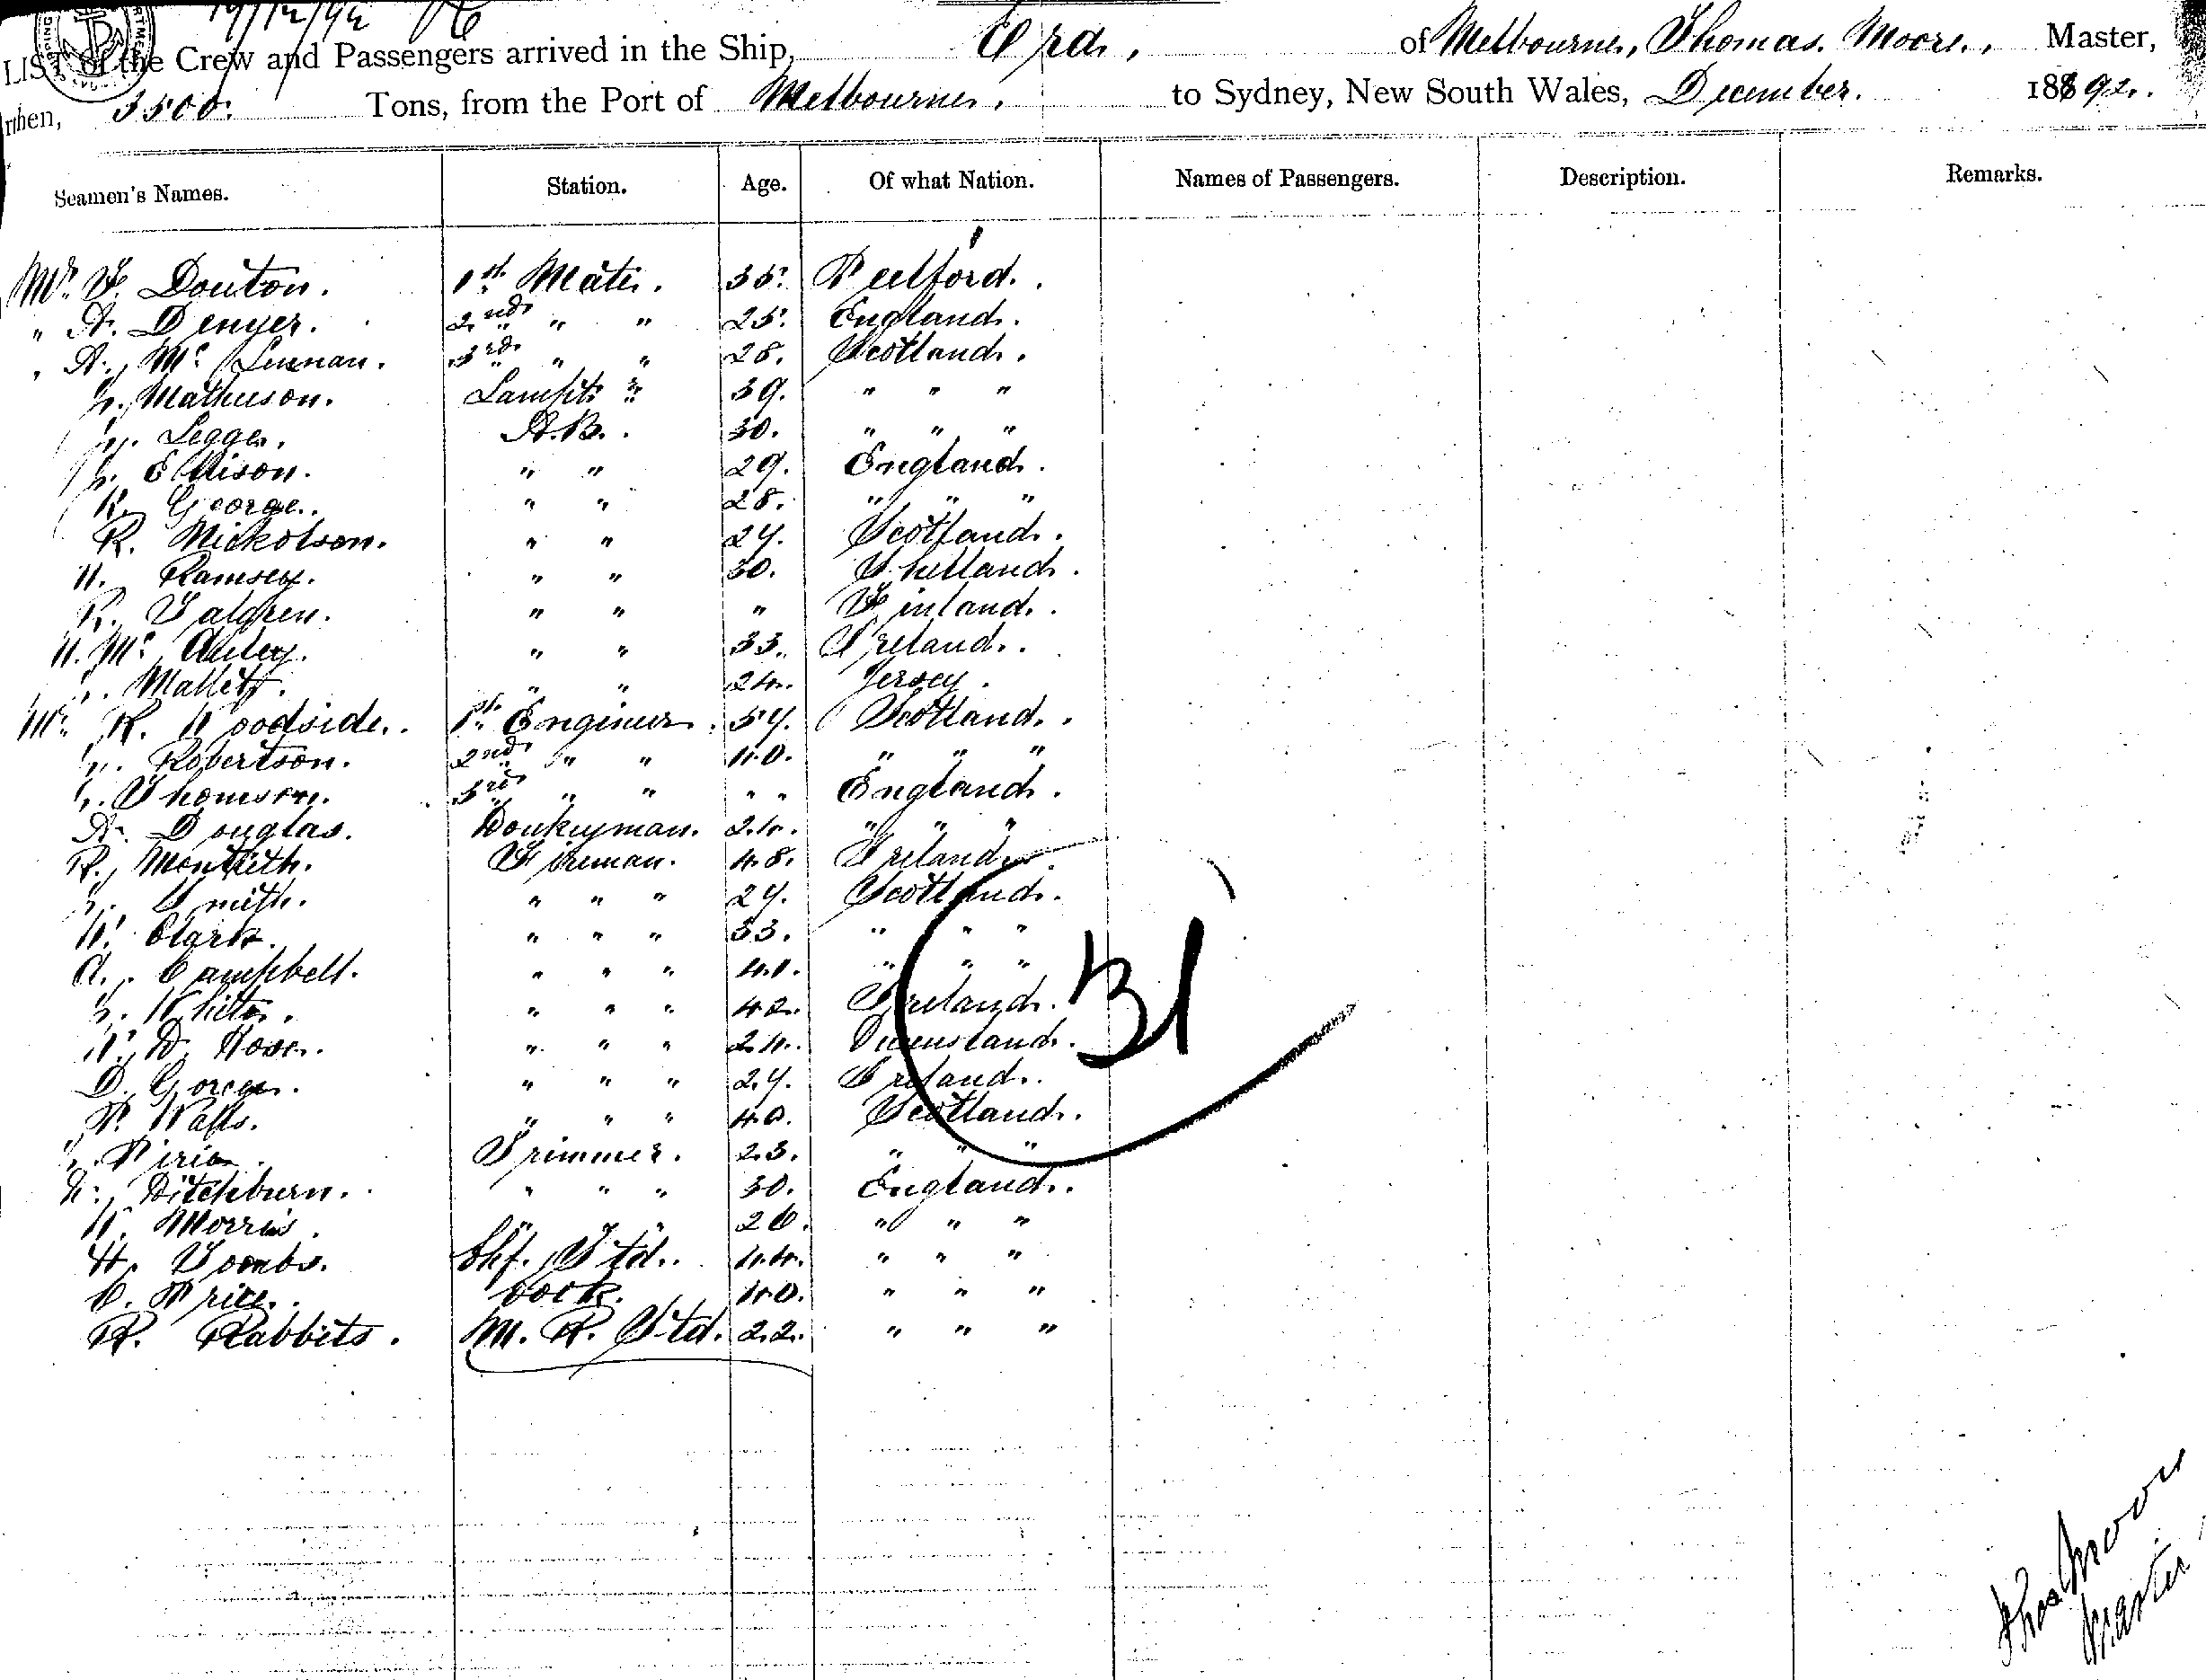 19/12/92
LIST of the Crew and Passengers arrived in the Ship, Era, of Melbourne, Thomas. Moore., Master,
Burthen, 3500. Tons, from the Port of Melbourne, to Sydney, New South Wales, December. 1892.
Seamen's Names. Station. Age. Of what Nation. Names of Passengers. Description. Remarks.
Mr. F. Douton. 1st. Mate. 35. Pellford.
" A. Denyer. 2nd " " 25. England.
" A. Mc Lennan. 3rd " " 28. Scotland.
Matheson. Lampts " 39. " " "
Legge. A.B. 30. " " "
Ellison. " " 29. England.
R. George. " " 28. " " "
R. Nickolson. " " 27. Scotland.
W. Ramsey. " " 30. Shetland.
R. Talgren. " " " Finland.
W. Mc Auley. " " 33. Ireland.
Mallett. " " 24. Jersey.
Mr. R. Woodside. 1st. Engineer. 57. Scotland.
Robertson. 2nd " " 40. " " "
Thomson. 3rd " " " " England.
A. Douglas. Donkeyman. 24. " " "
R. Montieth. Fireman. 48. Ireland.
Smith. " " " 27. Scotland.
W. Clark. " " " 33. " " "
A. Campbell. " " " 41. " " "
White. " " " 42. Ireland.
W. D. Rose. " " " 24. Queensland.
D. " " " 27. Ireland.
P. Watts. " " " 40. Scotland.
Pirie. Trimmer. 23. " " "
Ditchburn. " " " 30. England.
W. Morris. " " " 26. " " "
H. Toombs. Chf. Std. 44. " " "
C. Price. Cook. 40. " " "
R. Rabbits. M. R. Std. 22. " " "
31
Thos Moore
Master